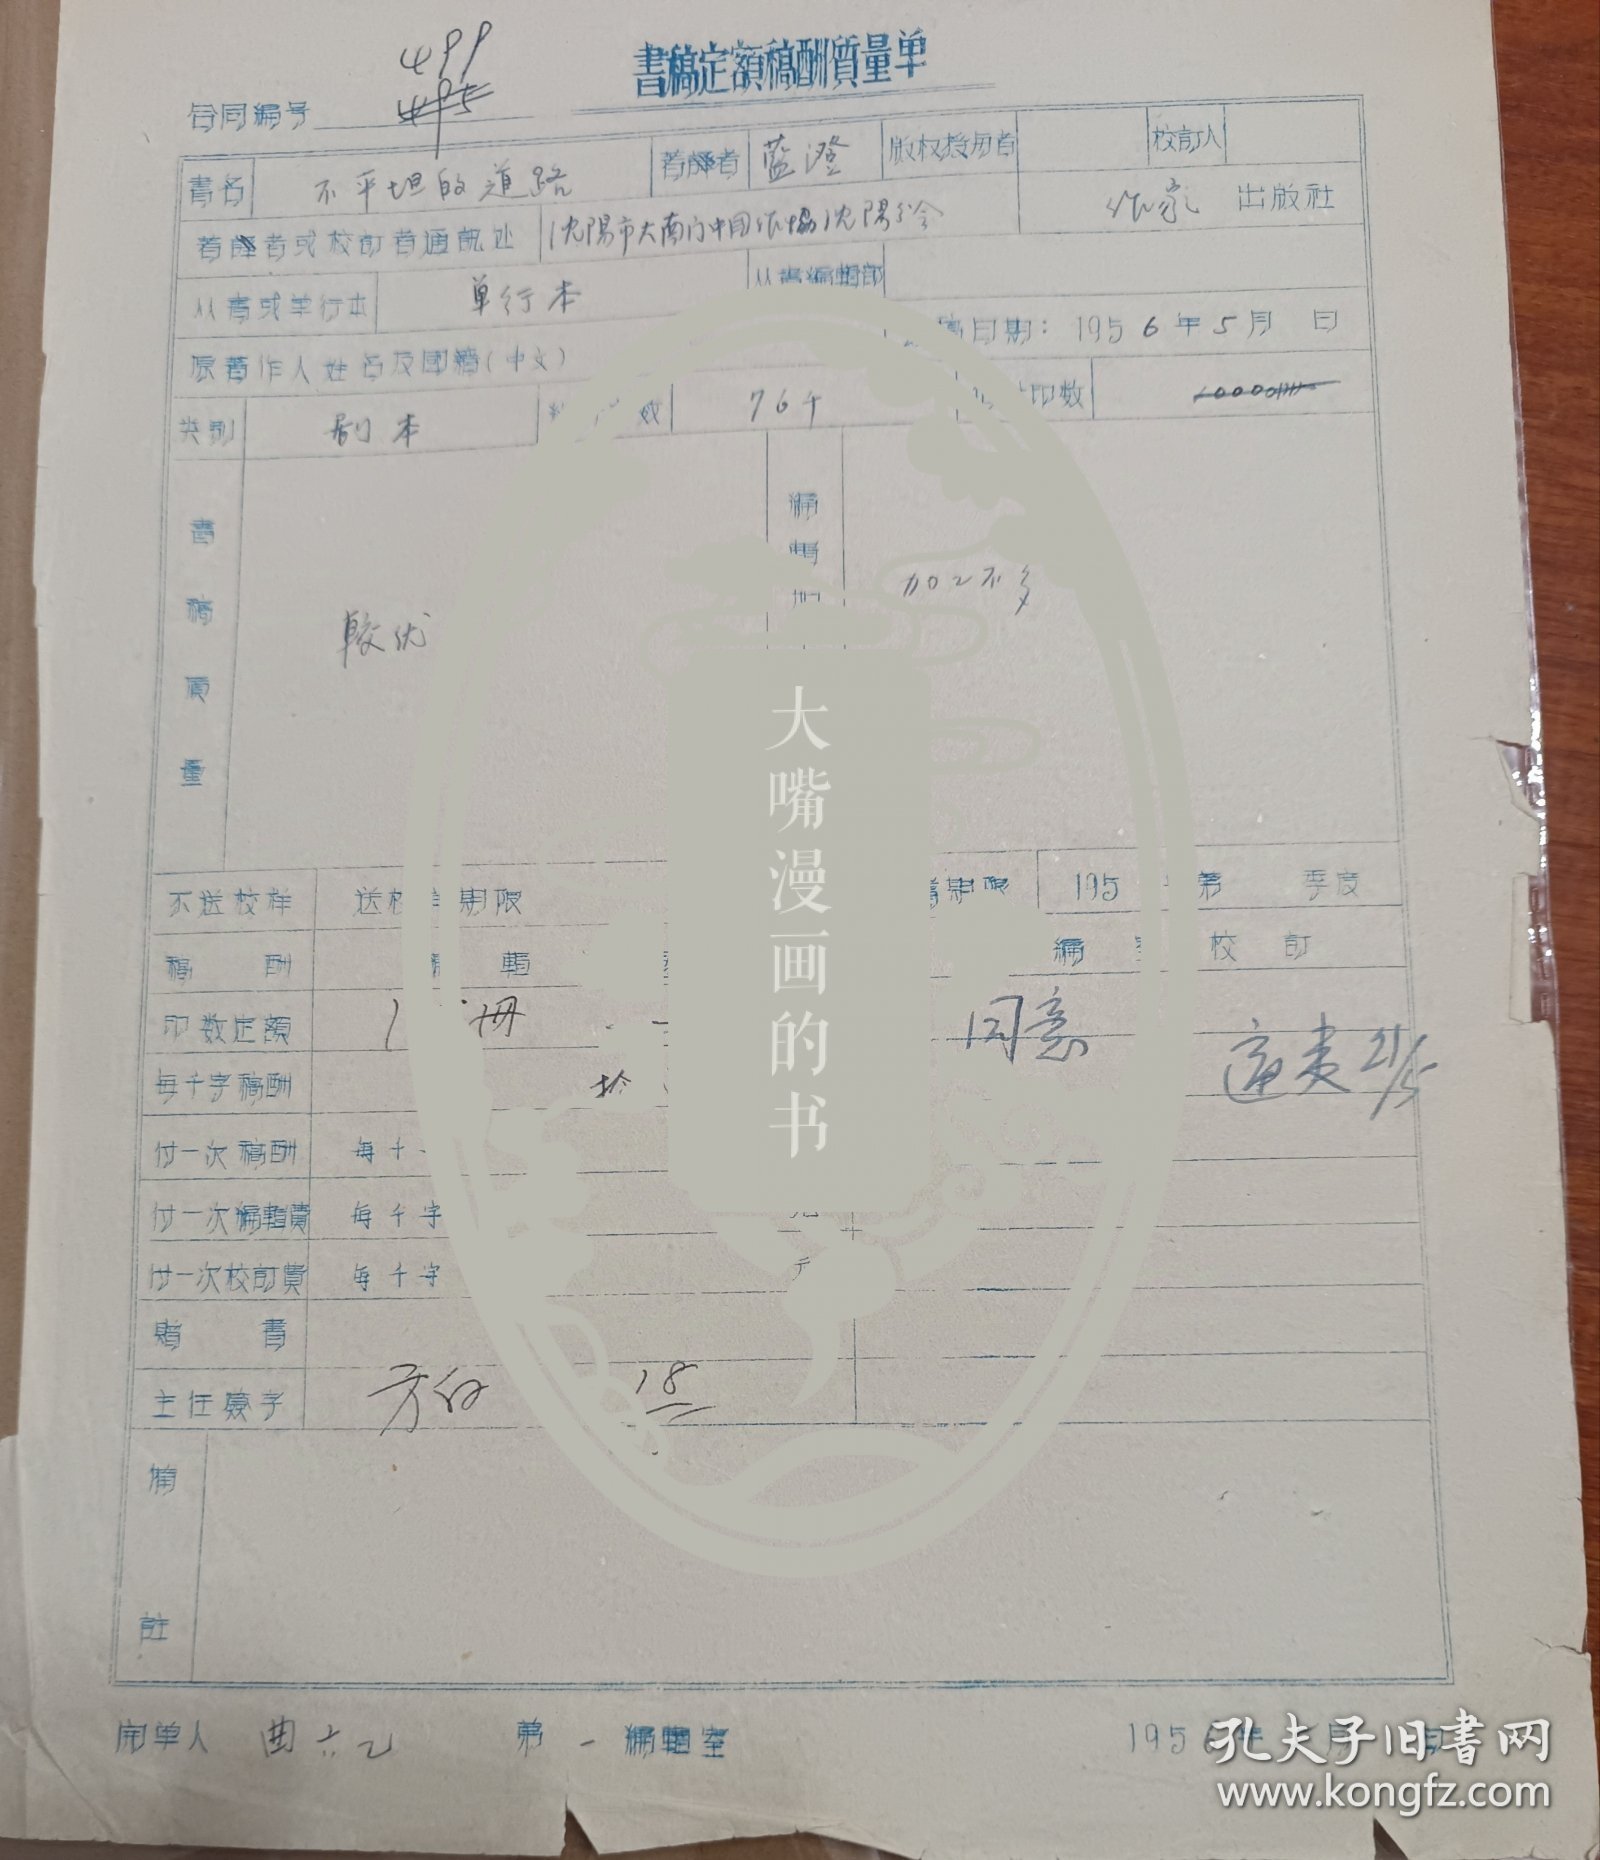 書稿定額稿酬質量单
合同編号 499
書名 不平坦的道路 著譯者 藍澄 版权授用者 校訂人
著譯者或校訂者通訊处 沈陽市大南门中国作協沈陽分会 作家 出版社
从書或单行本 单行本 从書編輯部
原著作人姓名及國籍(中文) 日期：1956年5月 日
类别 剧本 76千 印数
書稿質量 較优 編輯 加工不多
不送校样 送校 期限 期限 195 第 季度
稿酬 輯 編 校訂
印数定額 册 同意
每千字稿酬 拾
付一次稿酬 每千
付一次編輯費 每千字
付一次校訂費 每千字
贈書
主任簽字 方白 18
備註
开单人 曲六乙 第一編輯室 1956年 月 日
大嘴漫画的书
孔夫子旧书网
www.kongfz.com